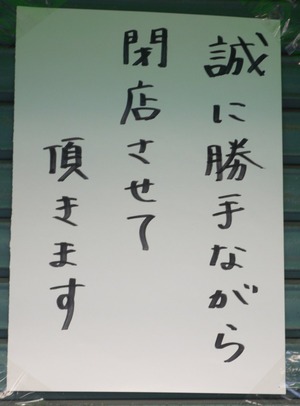 誠に勝手ながら
閉店させて
頂きます